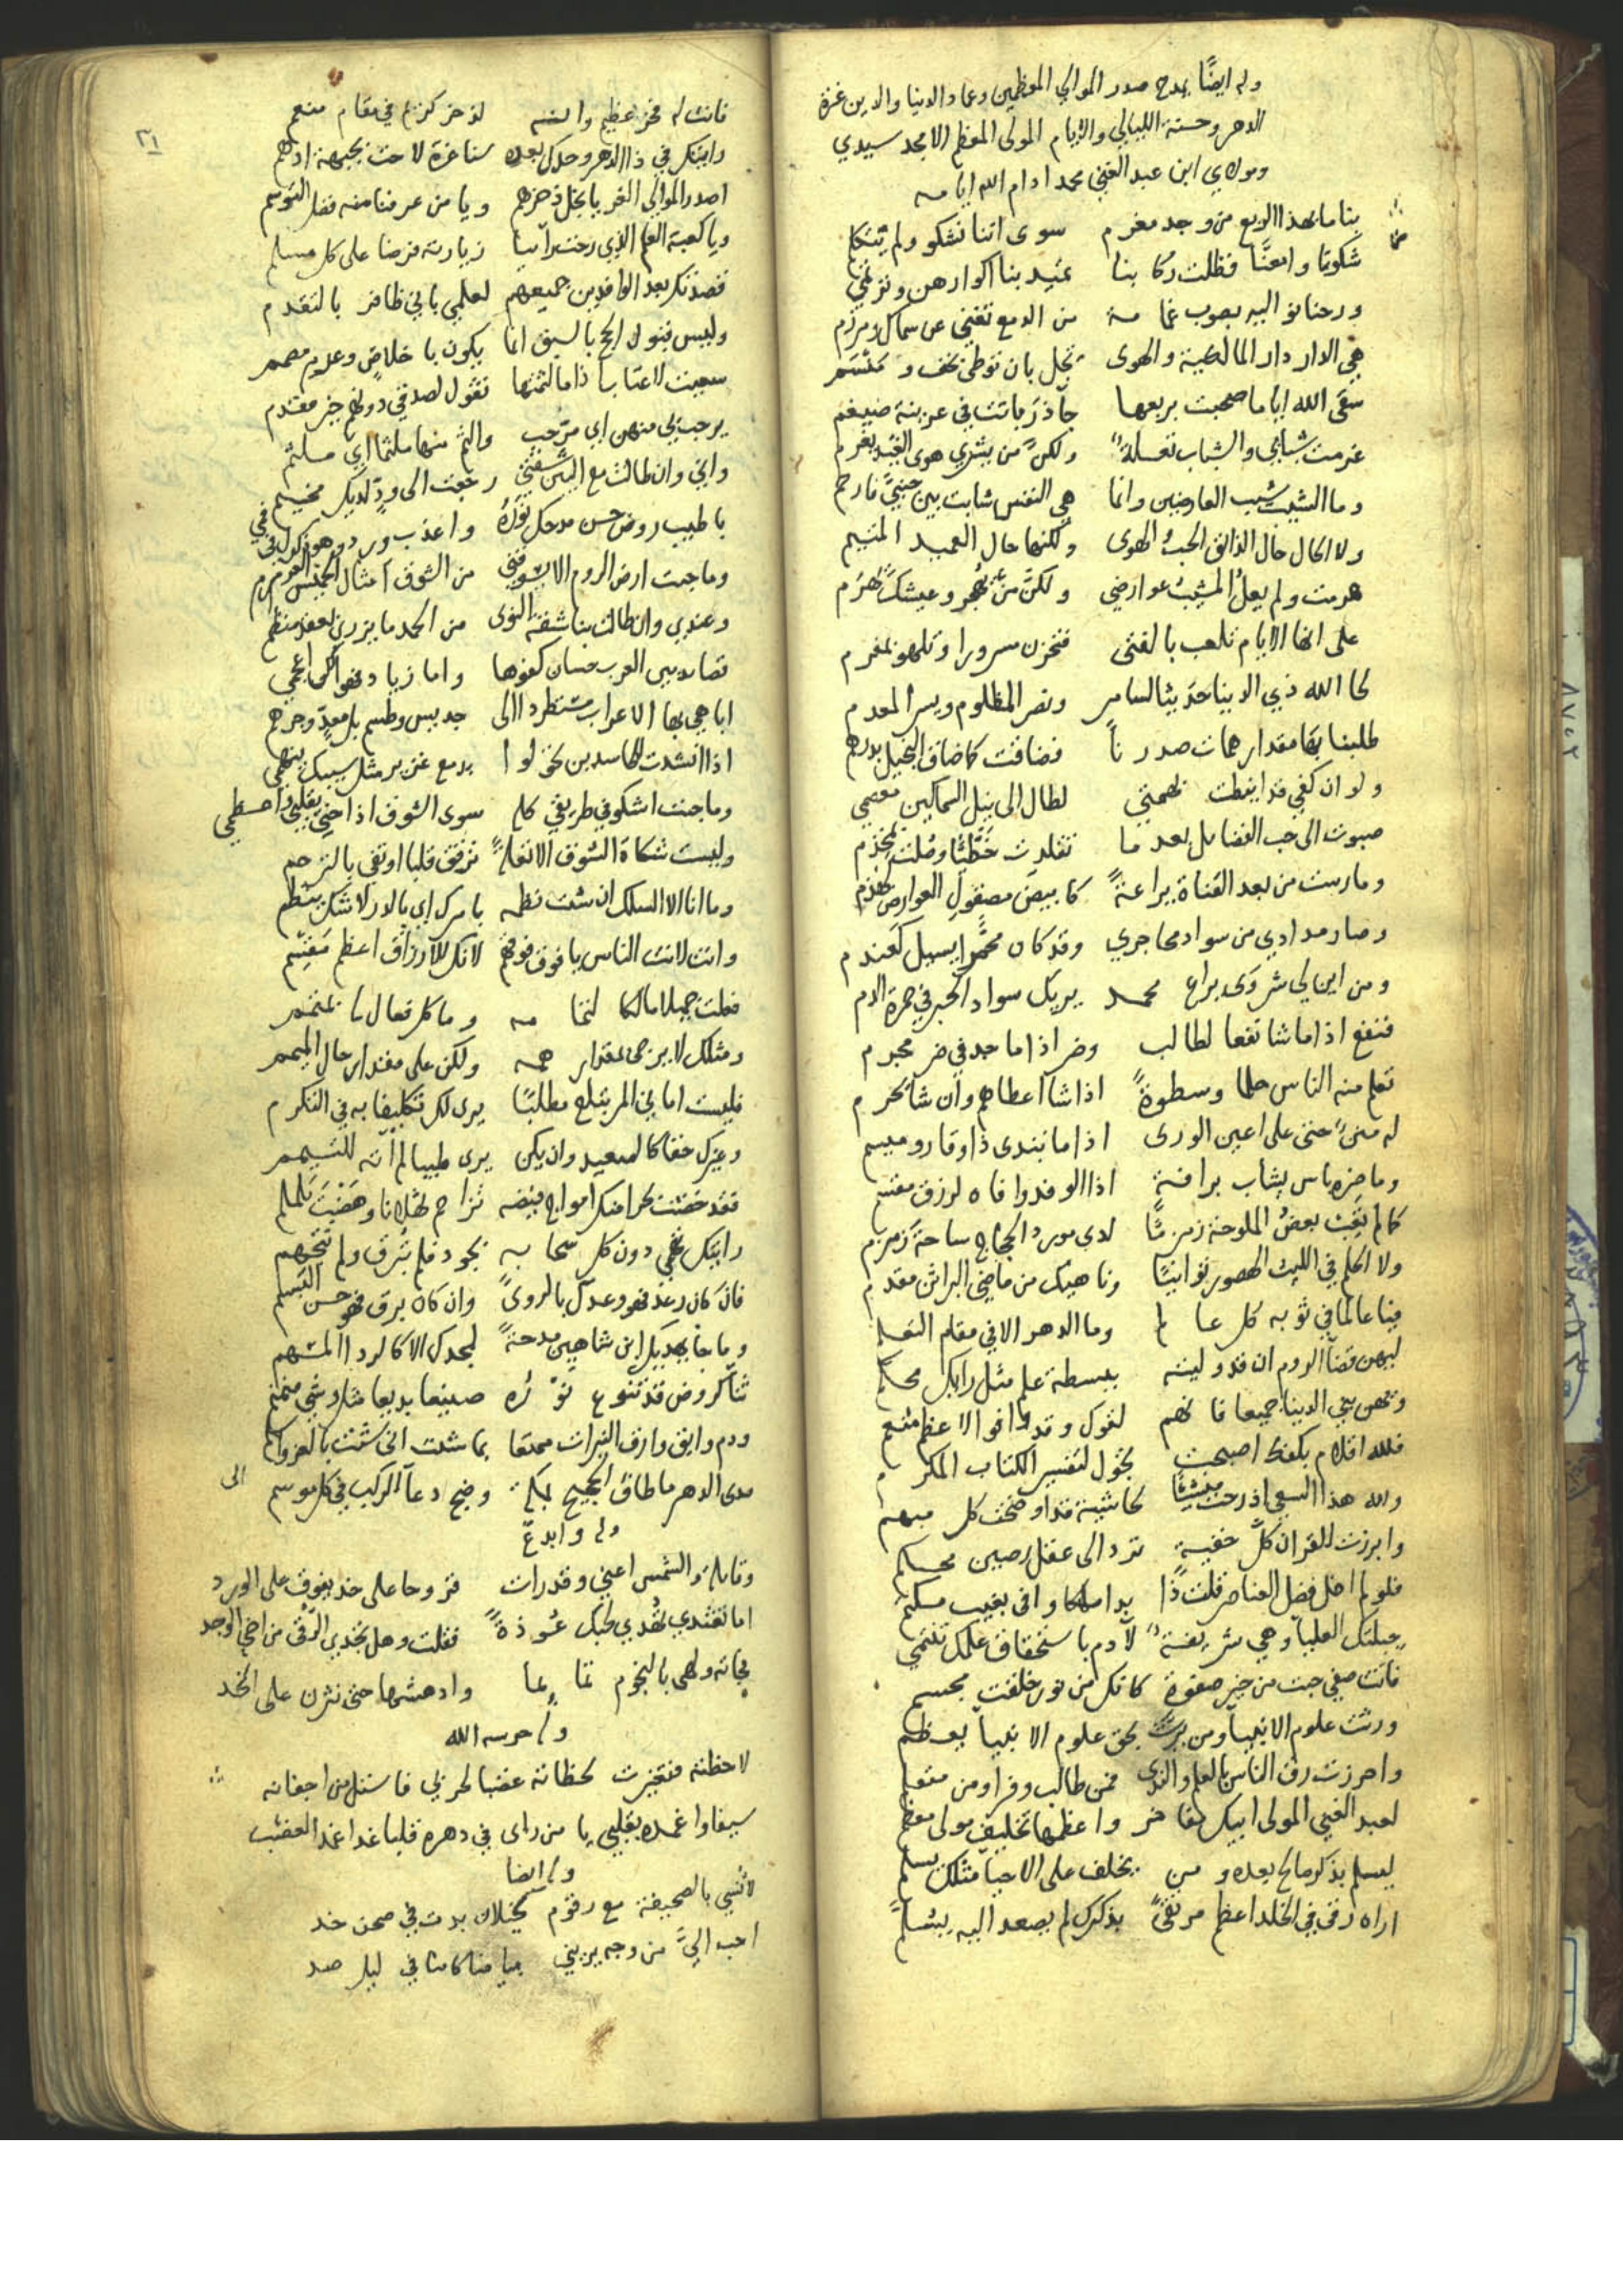 وله ايضًا يمدح صدر الموالي المعظمين وعماد الدنيا والدين غرة
الدهر وحسنة الليالي والايام المولى المعظم الامجد سيدي
ومولاي ابن عبد الغني محمد ادام الله ايامه
بنا ما بهذا الربع من وجد مغرم سوى اننا نشكو ولم يتكلم
شكونا وامعنَّا فظلت ركابنا تميد بنا اكوارهن وترتمي
ورحنا نوالبه بصوب غمامة من الدمع تغني عن سماك ومرزم
هي الدار دار المالكية والهوى تجل بان توطى بخف ومنسم
سقى الله اياما صحبت بربعها جآذر باتت في عرينة ضيغم
غرمت شبابي والشباب تعلة ولكن من يشري هوى الغيد يغرم
وما الشيب شيب العارضين وانما هي النفس شابت بين جنبيّ فارحم
ولا الحال حال الذائق الحب والهوى ولكنها حال العميد المتيم
هرمت ولم يعلُ المشيبُ عوارضي ولكنّ من يُهجر وعيشك يهرم
على انها الايام تلعب بالفتى فتحزن مسرورا وتلهو بمغرم
لحا الله ذي الدنيا حديثا لسامر ونصر المظلوم ويسر المعدم
طلبنا بها مقدار همات صدرنا فضاقت كما ضاق البخيل بدرهم
ولو ان كفي قد ايقظت لهمتي لطال الى نيل السماكين معصمي
صبوت الى حب الفضائل بعد ما تقلدت خطيًّا وصُلت بمخذم
ومارست من بعد القناة يراعةً كابيض مصقول العوارض لهذم
وصار مدادي من سواد محاجري وقد كان محمرا يسيل كعندم
ومن اين لي شروى يراع محمد يريك سواد الحبر في حمرة الدم
فنفع اذا ما شا نفعا لطالب وضر اذا ما جد في ضر مجرم
تعلم منه الناس حلما وسطوةً اذا شا اعطاهم وان شا يحرم
له منن حتى على اعين الورى اذا ما تبدى ذا وقار وميسم
وما ضره باس يشاب برافة اذا الوفد وافاه لرزق مقسم
كما لم يَعِب بعضُ الملوحة زمزمًا لدى مورد الحجاج ساحة زمزم
ولا الحلم في الليث الهصور توانيًا وناهيك من ماضي البراثن مقدم
فيا عالما في ثوبه كل عالم وما الدهر الا في مقام التعلم
ليهن قضآ الروم ان قد وليته ببسطة علم مثل رايك محكم
وتهن بني الدنيا جميعا فانهم لقول وقد وافوا لاعظم منعم
فلله اقلام بكفك اصبحت تجول لتفسير الكتاب المكرم
ولله هذا السعي اذ رحت منشئًا لحاشية قد اوضحت كل مبهم
وابرزت للقران كلَّ خفية ترد الى عقل رصين محكم
فلو لم اخل فضل العناصر قلت ذا بدا ملكا وافى بغيب مكتم
جبلتك العليآ وهي شريفة لآدم باستحقاق علمك تنتمي
فانت صفي جئت من خير صفوة كانك من نور خلقت مجسم
ورثت علوم الانبيآ ومن يرث بحق علوم الانبيآ يعظم
واحرزت رق الناس بالعلم والندى فمن طالب وفرا ومن متعلم
لعبد الغني المولى ابيك مفاخر واعظمها تخليف مولى معظم
ليسلم بذكر صالح بعده ومن يخلف على الاحيا مثلك يسلم
اراه رقى في الخلد اعظم مرتقىً بذكرك لم يصعد اليه بسلم
٢١
فانت له فخر عظيم وانه لذخر كريم في مقام منعم
رايتك في ذا الدهر وحدك بعده سنا غرة لاحت بجبهة ادهم
اصدر الموالي الغر يا نجل ذخرهم ويا من عرفنا منه فضل التوسم
ويا كعبة العلم الذي رحت رآئيا زيارته فرضا على كل مسلم
قصدتك بعد الوافدين جميعهم لعلمي باني ظافر بالتقدم
وليس قبول الحج بالسبق انما يكون باخلاص وعزم مصمم
سعيت لاعتاب اذا ما لثمتها تقول لصدقي دونهم خير مقدم
يرحب بي منهن اي مرحب والثم منها ملثما اي ملثم
واني وان طالت مع البين شقتي رجعت الى ودّ لديك مخيم
يا طيب روض حسن مدحك نَورُهُ واعذب ورد وهو كوثر في فمي
وما جبت ارض الروم الا يشوقني من الشوق امثال الخميس العرمرم
وعندي وان طالت بنا شقة النوى من الحمد ما يزري بعقد منظم
قصائد بين العرب حسان كفوها واما زياد فهو الكن اعجمي
اباهي بها الاعراب مستطردا الى جديس وطسم بل معدّ وجرهم
اذا انشدت للحاسدين تخولوا بدمع غزير مثل سيبك ينهمي
وما جئت اشكو في طريقي كله سوى الشوق اذ اخنى بقلبي واعظمي
وليست شكاة الشوق الا تعلةً ترفق قلبا او تفي بالترحم
وما انا الا السلك ان شئت نظمه بامرك اي بالدر لا شك ينظم
وانت لانت الناس يا فوق فوقهم لانك للارزاق اعظم مَقسَم
فعلت جميلا مالكا لتمامه وما كل فعال لما بمتمم
ومثلك لا يرجى بمقدار همة ولكن على مقدار حال الميمم
فليت اماني المرء تبلغ مطلبًا يرى لك تكليفا به في التكرم
وغيرك حقا كالصعيد وان يكن يرى طيبا لم أته للتيمم
فقد خضت بحرا منك امواج فيضه تزاحم ثهلانا وهضب يلملم
رايتك غيمي دون كل سحابه تجود فلم يُشرق ولم تتجهم
فان كان رعد فهو وعدك بالروىً وان كان برق فهو حسن التبسم
وما جا يهديك ابن شاهين مدحةً لمجدك الا كالردا المسهم
ثنآ كروض قد تنوع نوره صنيعا بديعا مثل وشي منمنم
ودم وابق وارق النيرات ممتعا بما شئت انى شئت بالعز واكرم
مدى الدهر ما طاف الحجيج بمكة وضج دعآ الركب في كل موسم الى
وله وابدعّ
وقابلته والشمس اعني وقد رات فتروحا على خد يفوق على الورد
اما تفتدي تهدي لجيدك عوذةً فقلت وهل تجدي الرقى من اخي الوجد
فجاته ولهى بالنجوم تمائما وادهشها حتى نثرن على الخد
وله حرسه الله
لاحظته فتغيرت لحظاته غضبا لحربي فاستل من اجفانه
سيفا واغمده بقلبي يا من راى في دهره قلبا غدا غمد العضب
وله ايضا
لأنسي بالصحيفة مع رقوم كخيلان بدت في صحن خد
احب اليَّ من وجه يريني بياضا كامنا في ليل صد